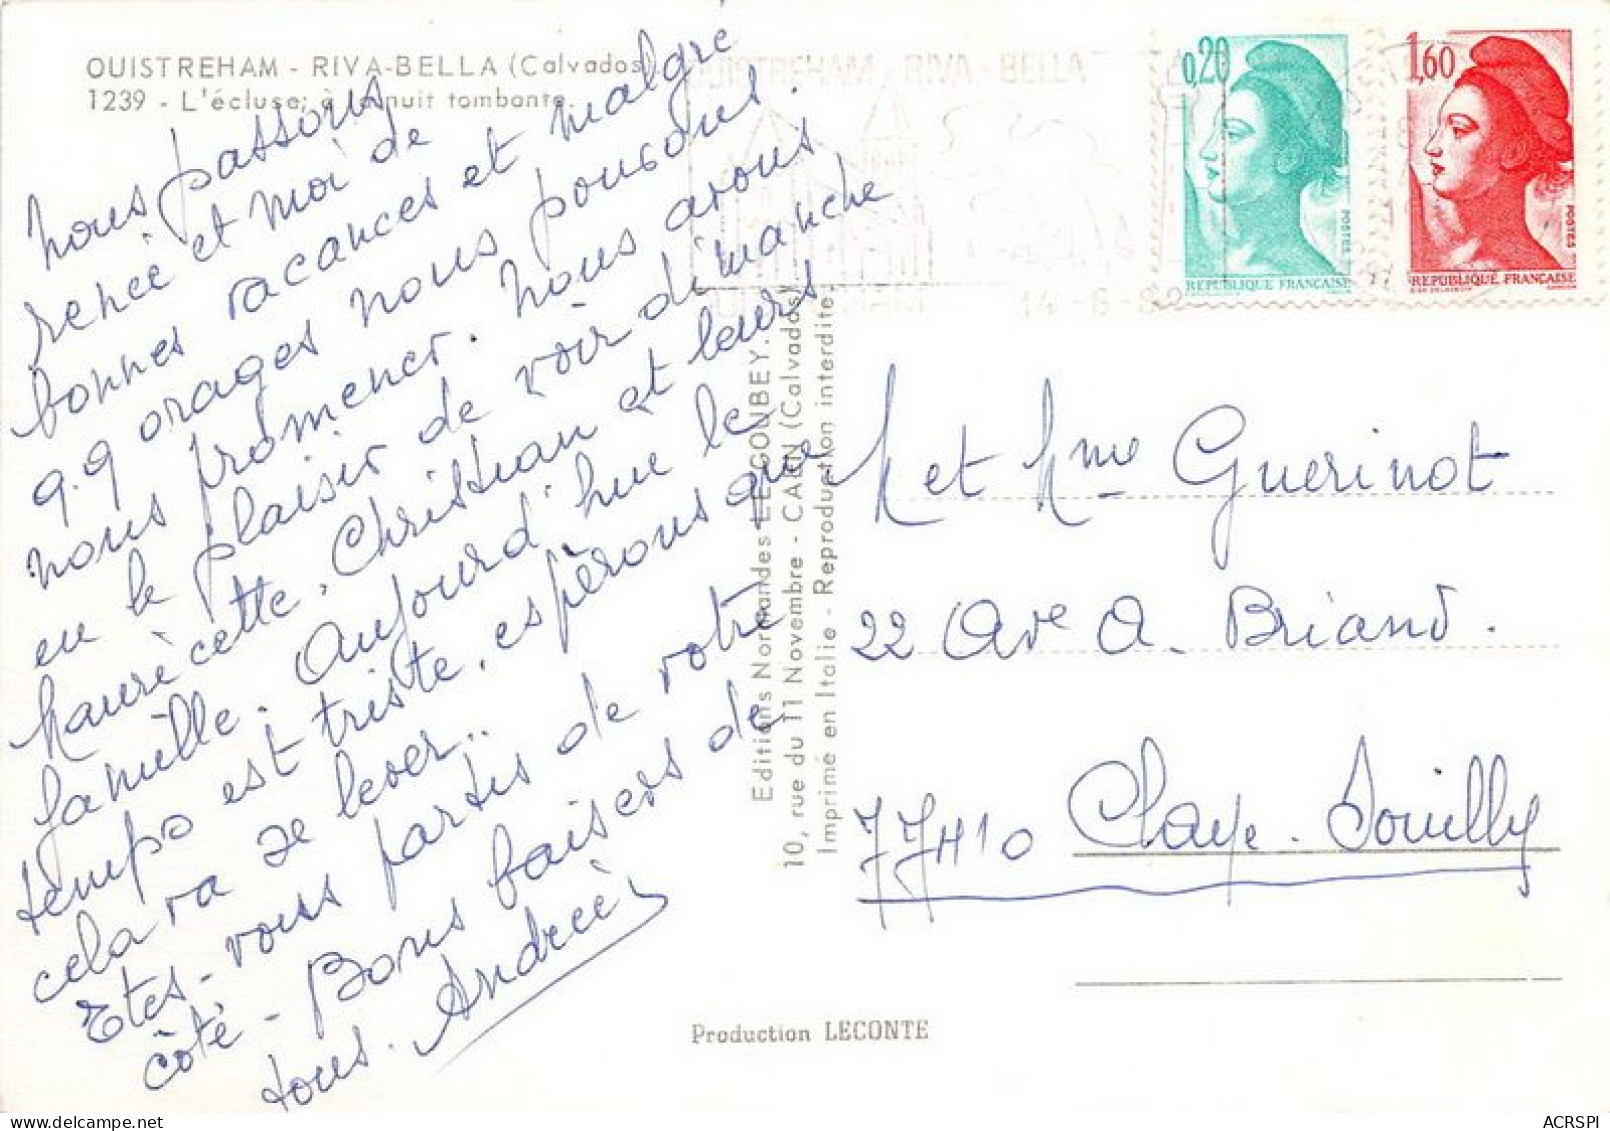 OUISTREHAM - RIVA-BELLA (Calvados)
1239 - L'écluse; à la nuit tombante.
OUISTREHAM RIVA-BELLA
14-6-82
0,20
POSTES
REPUBLIQUE FRANÇAISE
1,60
POSTES
REPUBLIQUE FRANÇAISE
nous passons
renée et moi de
bonnes vacances et malgré
q.q orages nous pouvons
nous promener. nous avons
eu le plaisir de voir dimanche
mauricette, Christian et leurs
famille. Aujourd'hui le
temps est triste, espérons que
cela va se lever..
Etes-vous partis de votre
côté - Bons baisers de
tous. Andrée
Editions Normandes LEGOUBEY.
10, rue du 11 Novembre - CAEN (Calvados)
Imprimé en Italie - Reproduction interdite.
M et Mme Guerinot
22 Ave A. Briand.
77410 Claye-Souilly
Production LECONTE
ACRSPI